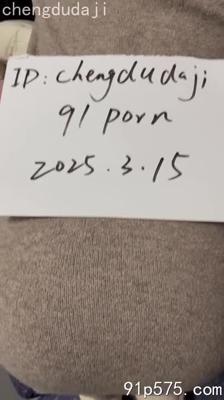 chengdudaji
ID: chengdudaji
91 porn
2025.3.15
91p575.com